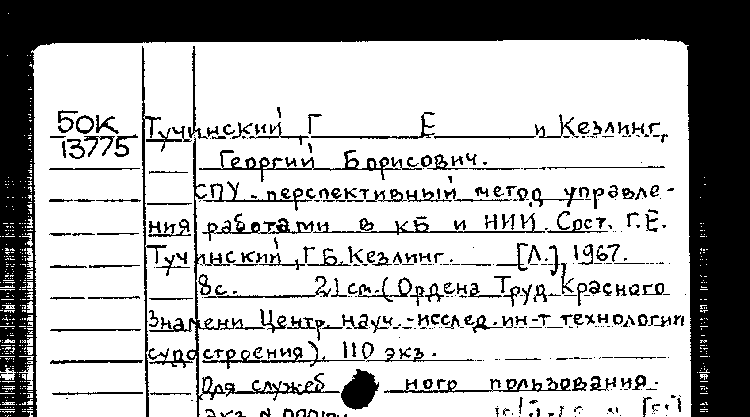 50К Тучинский, Г Е и Кезлинг,
13775 Георгий Борисович.
СПУ - перспективный метод управле-
ния работами в КБ и НИИ. Сост. Г.Е.
Тучинский, Г.Б. Кезлинг. [Л.], 1967.
8с. 21 см. (Ордена Труд. Красного
Знамени Центр. науч.-исслед. ин-т технологии
судостроения). 110 экз.
Для служеб ного пользования.
Экз. №